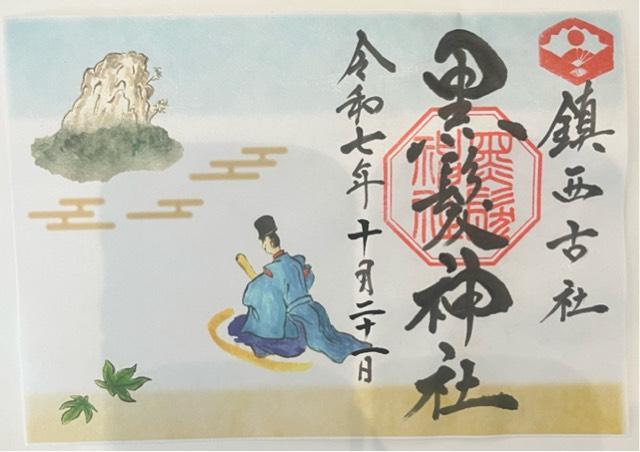 鎮西古社
黒髪神社
令和七年十月二十一日